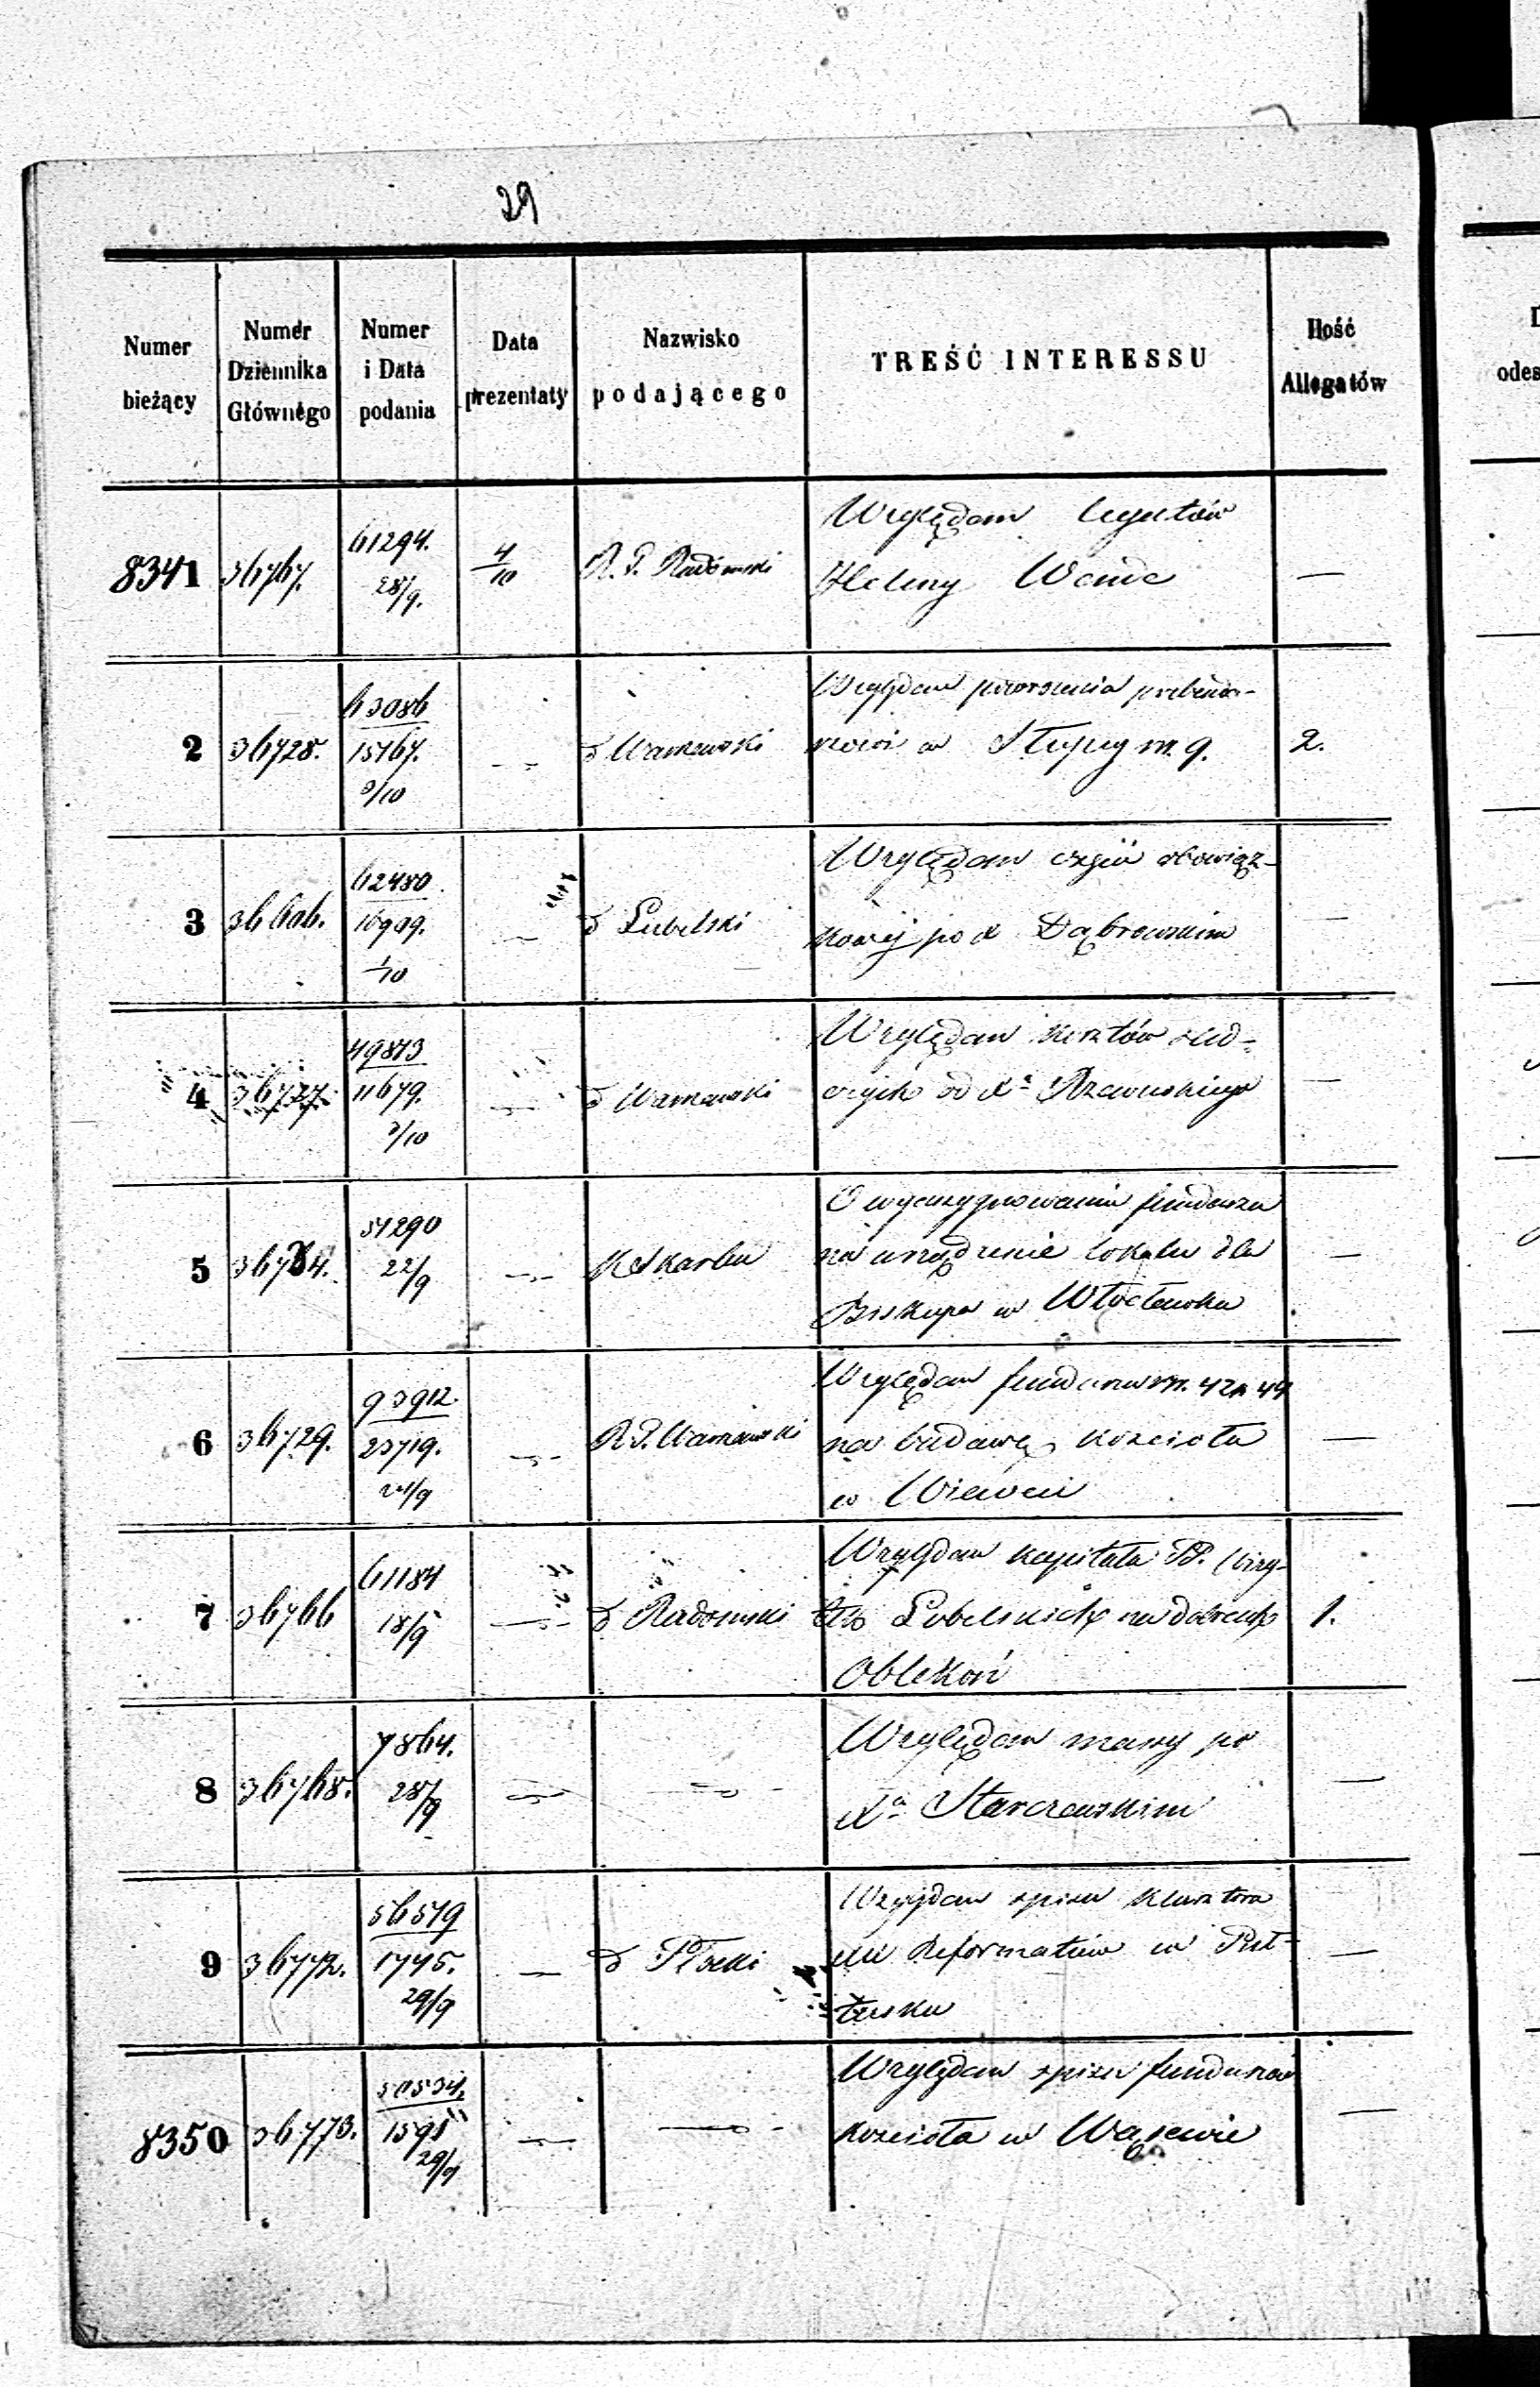 29
Numer bieżący | Numer Dziennika Głównego | Numer i Data podania | Data prezentaty | Nazwisko podającego | TREŚĆ INTERESSU | Ilość Allegatów
8341 | 36767. | 61294. 28/9. | 4/10 | R. G. Radomski | Względem legatów
Heleny Wende | —
2 | 36728. | 63086 15767. 3/10 | — | d Warszawski | Względem
w Słupcy m. 9. | 2.
3 | 36606. | 62480. 16909. 1/10 | — | d Lubelski | Względem obowiąz-
kowej po X Dąbrowskim | —
4 | 36727. | 49813 11679. 3/10 | — | d Warszawski | Względem kosztów
od Xa Rzewuskiego | —
5 | 36734. | 51290 22/9 | — | K Skarbu | O wyasygnowanie funduszu
na urządzenie lokalu dla
Biskupa w Włocławku | —
6 | 36729. | 93912. 23719. 24/9 | — | R. G. Warszawski | Względem funduszu
na budowę kościoła
w | —
7 | 36766 | 61184 18/9 | — | d Radomski | Względem kapitału PP. Wizy-
tek Lubelskich na dobrach
Oblekoń | 1.
8 | 36768. | 7864. 28/9 | — | — | Względem massy po
Xu Starczewskim | —
9 | 36772. | 56579 1745. 29/9 | — | d Płocki | Względem spisu klasztoru
Reformatów w Puł-
tusku | —
8350 | 36773. | 50534. 1591 29/9 | — | — | Względem spisu funduszów
kościoła w Wąsewie | —